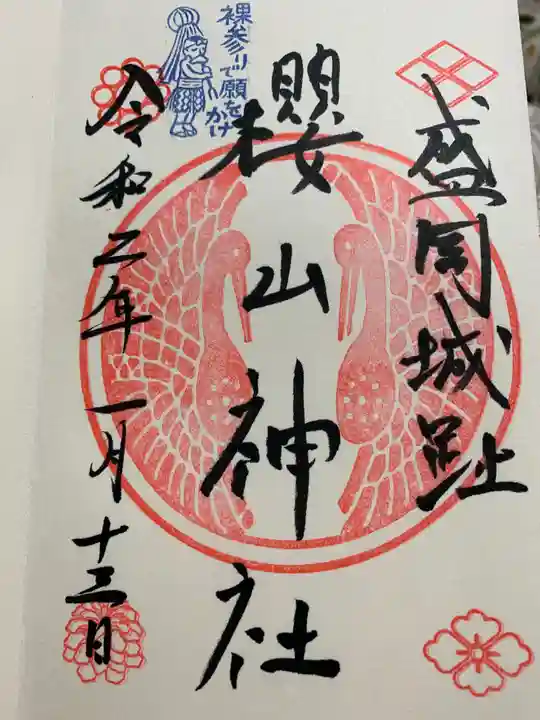 盛岡城跡
櫻山神社
令和二年一月十三日
裸参りで願を
かけ